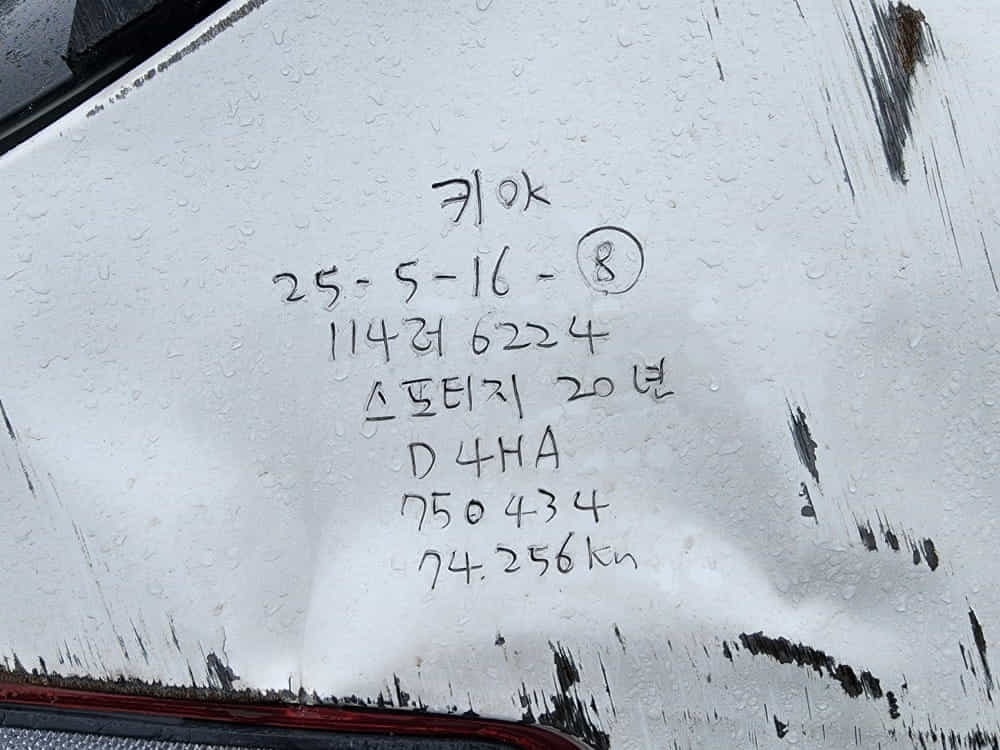 키 OK
25-5-16-⑧
114러 6224
스포티지 20년
D4HA
750434
74.256Km